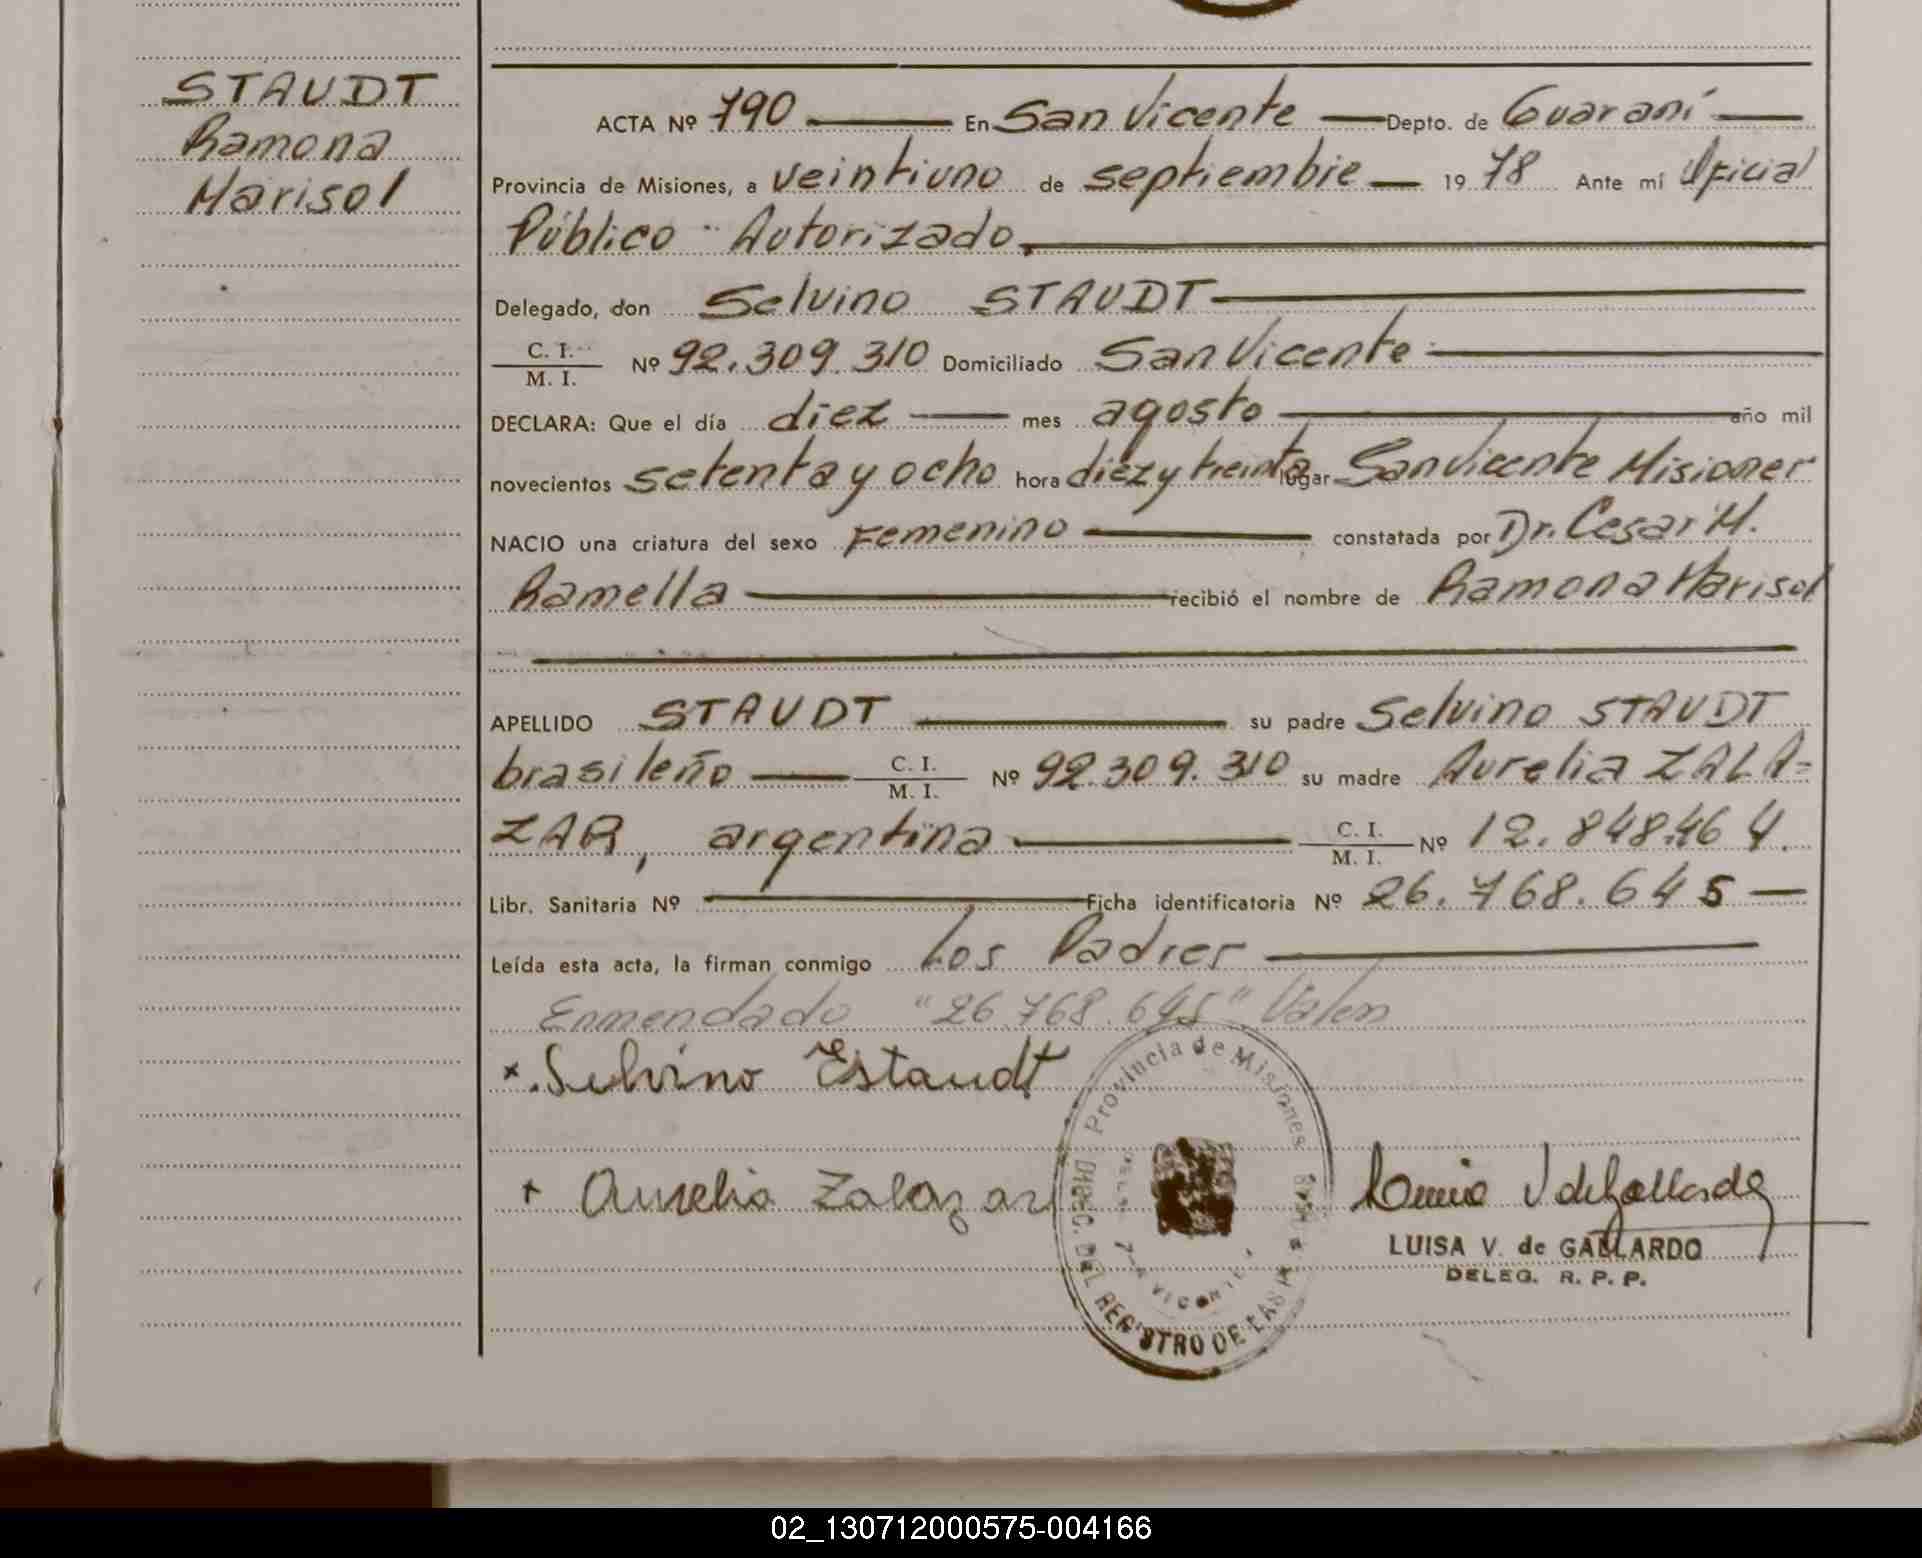 STAUDT
Ramona
Marisol
ACTA Nº 790 En San Vicente Depto. de Guaraní
Provincia de Misiones, a veintiuno de septiembre 19 78 Ante mí Oficial
Público Autorizado,
Delegado, don Selvino STAUDT
C. I.
M. I. Nº 92.309.310 Domiciliado San Vicente
DECLARA: Que el día diez mes agosto año mil
novecientos setenta y ocho hora diez y treinta lugar San Vicente Misiones
NACIO una criatura del sexo Femenino constatada por Dr. Cesar M.
Ramella recibió el nombre de Ramona Marisol
APELLIDO STAUDT su padre Selvino STAUDT
brasileño C. I. M. I. Nº 92.309.310 su madre Aurelia ZALA=
ZAR, argentina C. I. M. I. Nº 12.848.464.
Libr. Sanitaria Nº Ficha identificatoria Nº 26.768.645
Leída esta acta, la firman conmigo Los Padres
Enmendado "26.768.645" Valen
x. Selvino Estaudt
+ Aurelia Zalazar
Provincia de Misiones
DIREC. DEL REGISTRO DE LAS
LUISA V. de GALLARDO
DELEG. R. P. P.
02_130712000575-004166